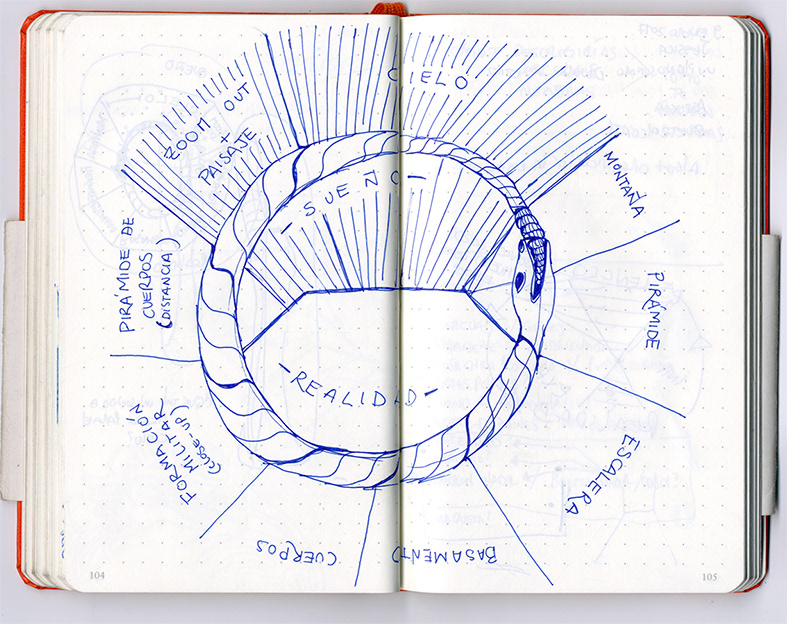 CIELO
ZOOM OUT
+
PAISAJE
- SUEÑO -
MONTAÑA
PIRÁMIDE DE
CUERPOS
(DISTANCIA)
PIRÁMIDE
- REALIDAD -
FORMACIÓN
MILITAR
(CLOSE-UP)
ESCALERA
CUERPOS
BASAMENTO
104
105